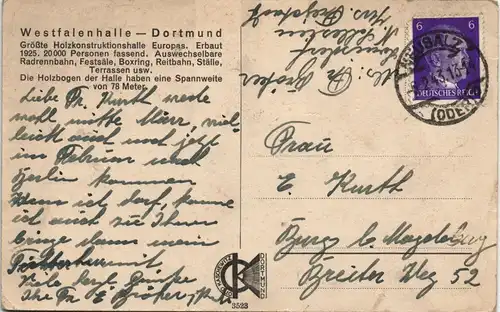 Westfalenhalle — Dortmund
Größte Holzkonstruktionshalle Europas. Erbaut
1925. 20000 Personen fassend. Auswechselbare
Radrennbahn, Festsäle, Boxring, Reitbahn, Ställe,
Terrassen usw.
Die Holzbogen der Halle haben eine Spannweite
von 78 Meter.
Liebe Fr. Kurth werde
wohl mitte März, viel-
leicht auch noch jetzt
im Februar nach
Berlin kommen
Wenn ich darf, komme
ich auch zu Ihnen
bringe dann mein
mit
Viele herzl. Grüße
Ihre Fr. E.
3523
6
6
DEUTSCHES REICH
NEUSALZ
(ODER)
Frau
E. Kurth
Burg b. Magdeburg
Breiter Weg 52